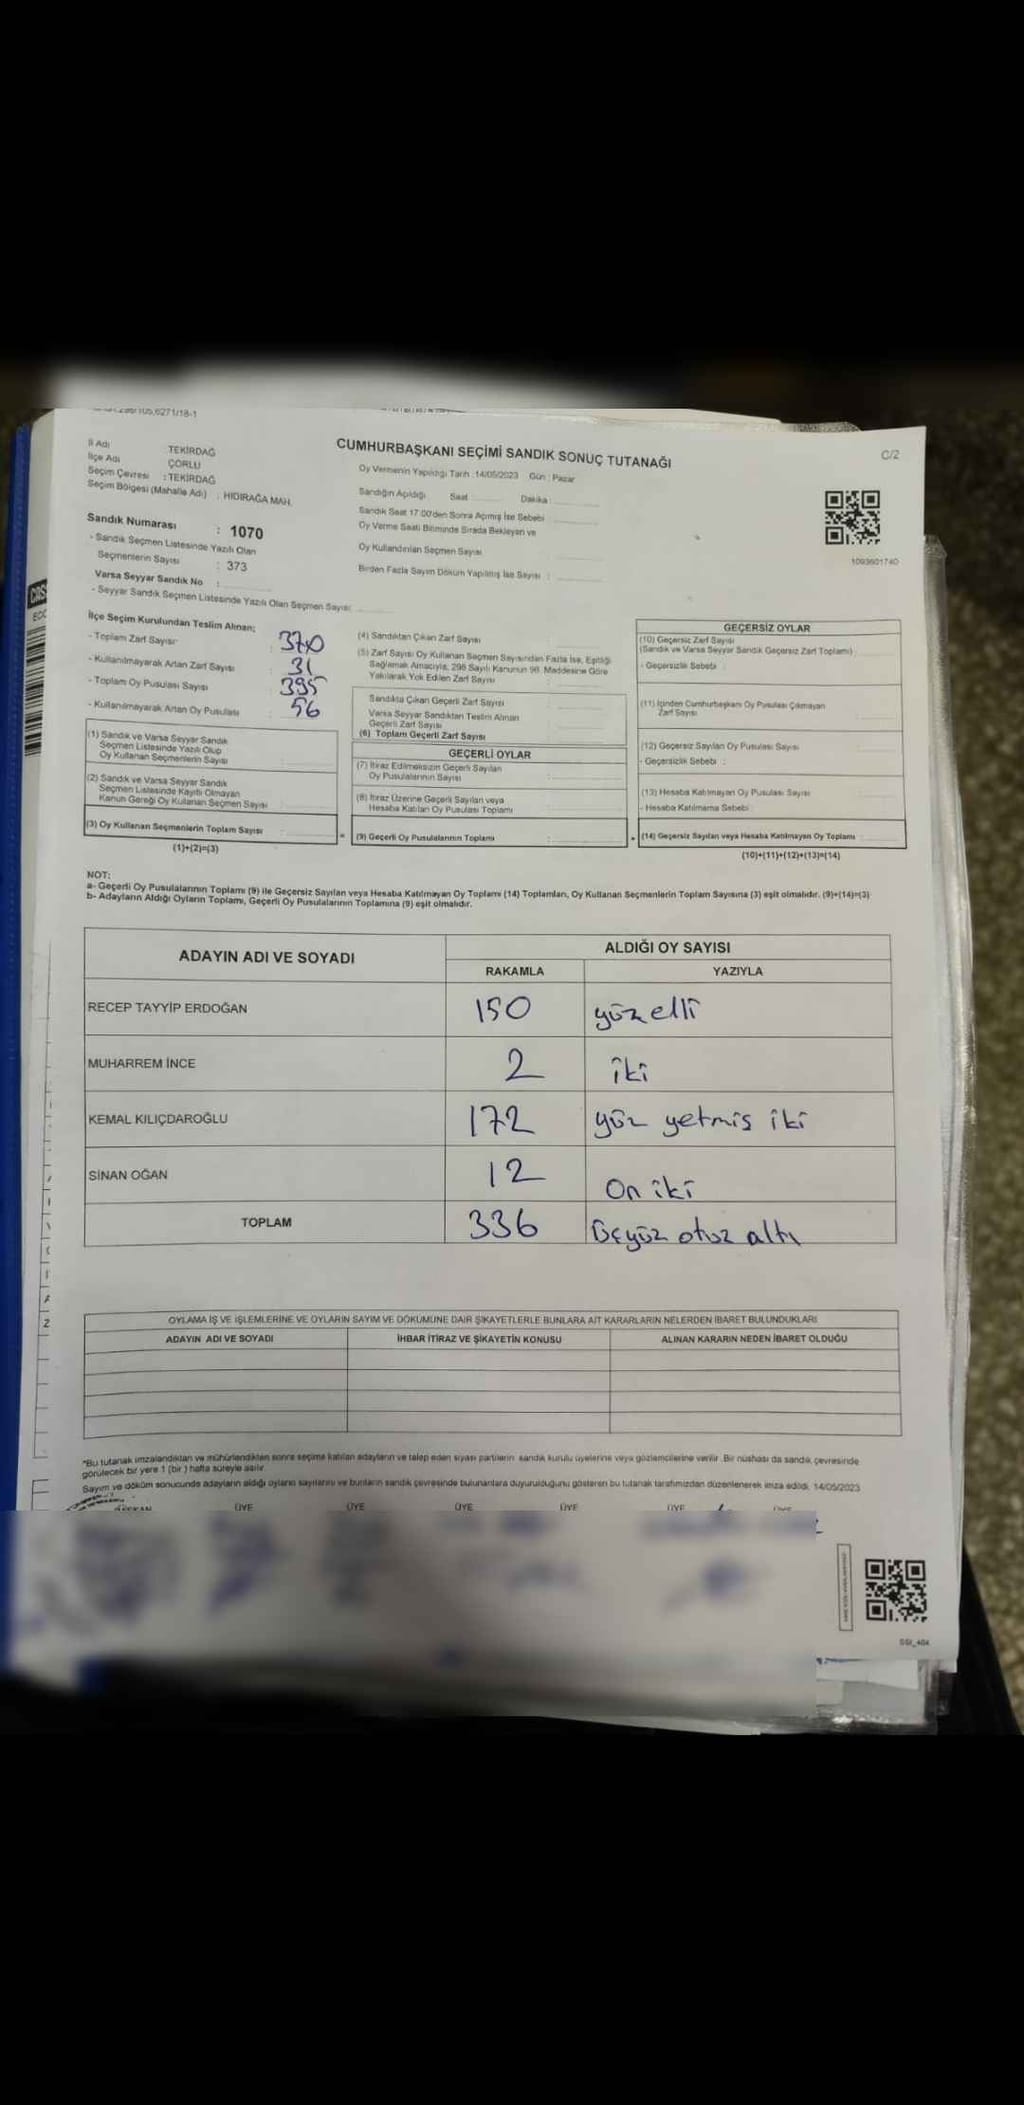 İl Adı : TEKİRDAĞ
İlçe Adı : ÇORLU
Seçim Çevresi : TEKİRDAĞ
Seçim Bölgesi (Mahalle Adı) : HIDIRAĞA MAH.
CUMHURBAŞKANI SEÇİMİ SANDIK SONUÇ TUTANAĞI
C/2
Oy Vermenin Yapıldığı Tarih :14/05/2023 Gün : Pazar
Sandığın Açıldığı Saat Dakika :
Sandık Saat 17:00'den Sonra Açılmış İse Sebebi :
Oy Verme Saati Bitiminde Sırada Bekleyen ve
Oy Kullandırılan Seçmen Sayısı
Birden Fazla Sayım Döküm Yapılmış İse Sayısı :
1093601740
Sandık Numarası : 1070
- Sandık Seçmen Listesinde Yazılı Olan
Seçmenlerin Sayısı : 373
Varsa Seyyar Sandık No :
- Seyyar Sandık Seçmen Listesinde Yazılı Olan Seçmen Sayısı
İlçe Seçim Kurulundan Teslim Alınan;
- Toplam Zarf Sayısı : 370
- Kullanılmayarak Artan Zarf Sayısı : 31
- Toplam Oy Pusulası Sayısı : 395
- Kullanılmayarak Artan Oy Pusulası : 56
(1) Sandık ve Varsa Seyyar Sandık
Seçmen Listesinde Yazılı Olup
Oy Kullanan Seçmenlerin Sayısı
(2) Sandık ve Varsa Seyyar Sandık
Seçmen Listesinde Kayıtlı Olmayan
Kanun Gereği Oy Kullanan Seçmen Sayısı
(3) Oy Kullanan Seçmenlerin Toplam Sayısı :
(1)+(2)=(3)
(4) Sandıktan Çıkan Zarf Sayısı
(5) Zarf Sayısı Oy Kullanan Seçmen Sayısından Fazla İse, Eşitliği
Sağlamak Amacıyla, 298 Sayılı Kanunun 98. Maddesine Göre
Yakılarak Yok Edilen Zarf Sayısı
Sandıkta Çıkan Geçerli Zarf Sayısı
Varsa Seyyar Sandıktan Teslim Alınan
Geçerli Zarf Sayısı
(6) Toplam Geçerli Zarf Sayısı
GEÇERLİ OYLAR
(7) İtiraz Edilmeksizin Geçerli Sayılan
Oy Pusulalarının Sayısı
(8) İtiraz Üzerine Geçerli Sayılan veya
Hesaba Katılan Oy Pusulası Toplamı
(9) Geçerli Oy Pusulalarının Toplamı :
GEÇERSİZ OYLAR
(10) Geçersiz Zarf Sayısı
(Sandık ve Varsa Seyyar Sandık Geçersiz Zarf Toplamı)
- Geçersizlik Sebebi :
(11) İçinden Cumhurbaşkanı Oy Pusulası Çıkmayan
Zarf Sayısı
(12) Geçersiz Sayılan Oy Pusulası Sayısı
- Geçersizlik Sebebi :
(13) Hesaba Katılmayan Oy Pusulası Sayısı
- Hesaba Katılmama Sebebi
(14) Geçersiz Sayılan veya Hesaba Katılmayan Oy Toplamı :
(10)+(11)+(12)+(13)=(14)
NOT:
a- Geçerli Oy Pusulalarının Toplamı (9) ile Geçersiz Sayılan veya Hesaba Katılmayan Oy Toplamı (14) Toplamları, Oy Kullanan Seçmenlerin Toplam Sayısına (3) eşit olmalıdır. (9)+(14)=(3)
b- Adayların Aldığı Oyların Toplamı, Geçerli Oy Pusulalarının Toplamına (9) eşit olmalıdır.
ADAYIN ADI VE SOYADI
ALDIĞI OY SAYISI
RAKAMLA YAZIYLA
RECEP TAYYİP ERDOĞAN 150 yüzelli
MUHARREM İNCE 2 iki
KEMAL KILIÇDAROĞLU 172 yüz yetmis iki
SİNAN OĞAN 12 On iki
TOPLAM 336 Üçyüz otuz altı
OYLAMA İŞ VE İŞLEMLERİNE VE OYLARIN SAYIM VE DÖKÜMÜNE DAİR ŞİKAYETLERLE BUNLARA AİT KARARLARIN NELERDEN İBARET BULUNDUKLARI
ADAYIN ADI VE SOYADI İHBAR İTİRAZ VE ŞİKAYETİN KONUSU ALINAN KARARIN NEDEN İBARET OLDUĞU
*Bu tutanak imzalandıktan ve mühürlendikten sonra seçime katılan adayların ve talep eden siyasi partilerin sandık kurulu üyelerine veya gözlemcilerine verilir. Bir nüshası da sandık çevresinde
görülecek bir yere 1 (bir) hafta süreyle asılır
Sayım ve döküm sonucunda adayların aldığı oyların sayılarını ve bunların sandık çevresinde bulunanlara duyurulduğunu gösteren bu tutanak tarafımızdan düzenlenerek imza edildi. 14/05/2023
ÜYE ÜYE ÜYE ÜYE ÜYE